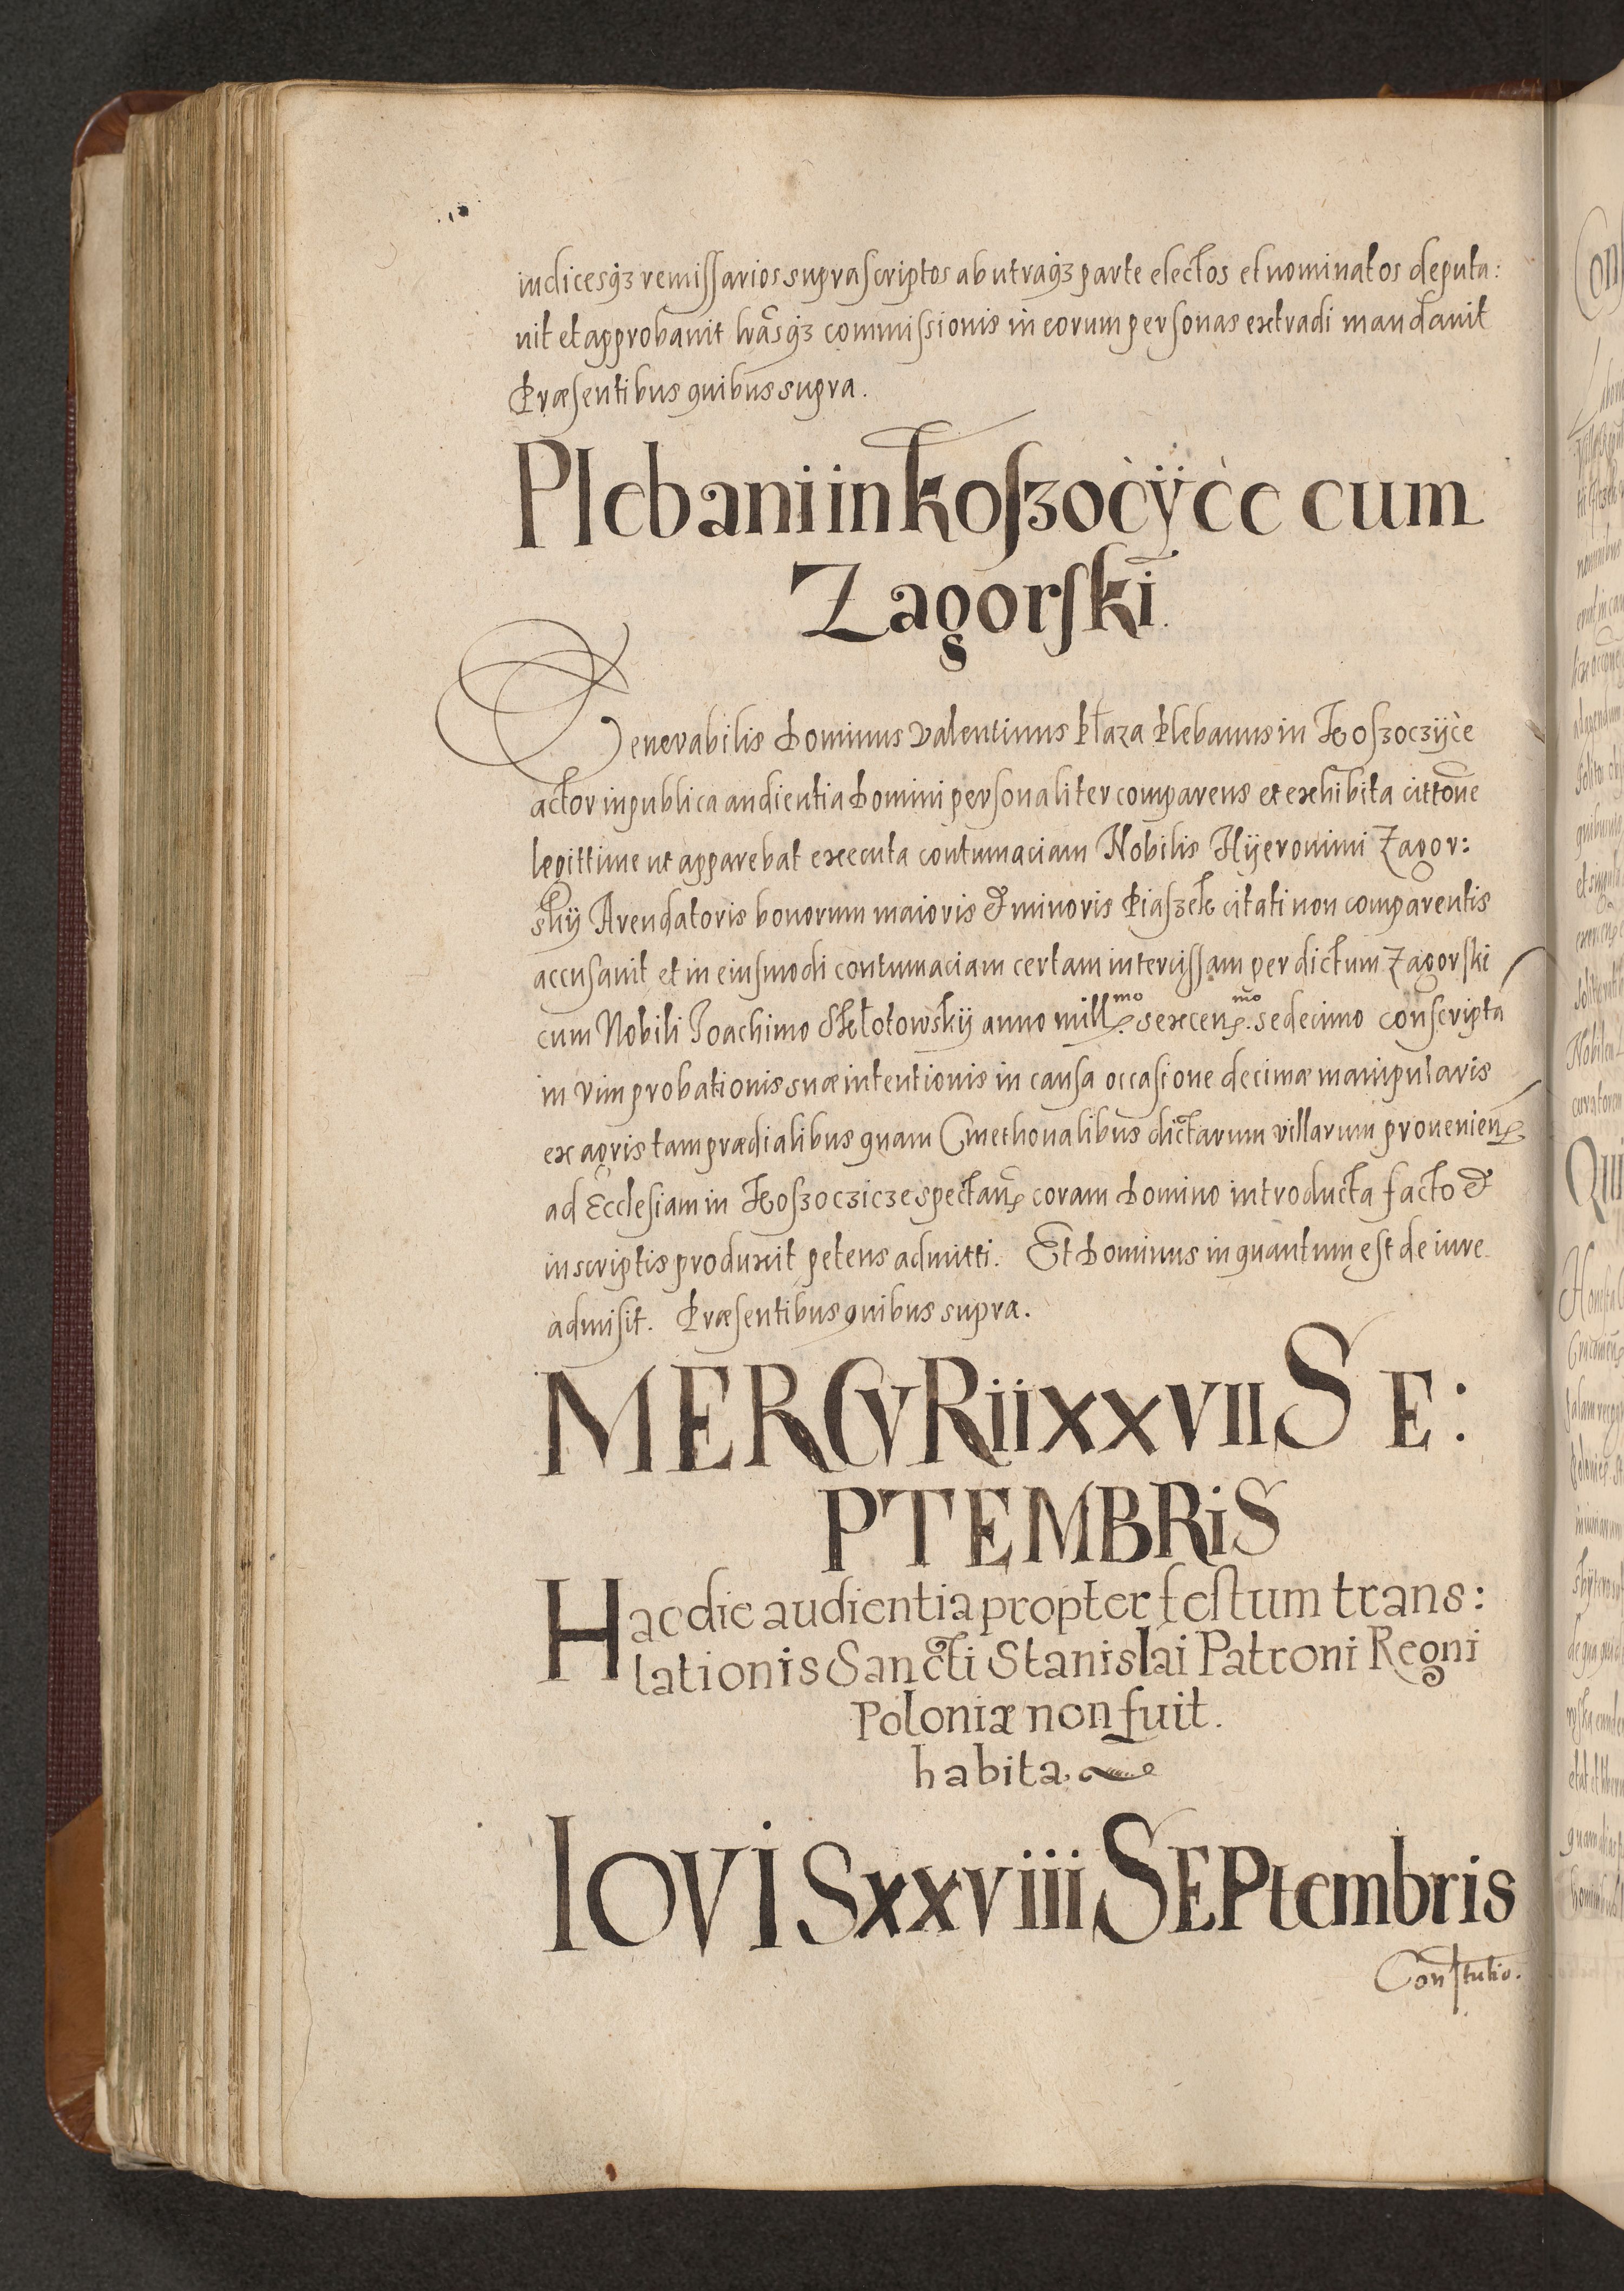 iudicesq3 remissarios suprascriptos ab utraq3 parte electos et nominatos deputa:
uit et approbauit lrãsq3 commissionis in eorum personas extradi mandauit
Præsentibus quibus supra.
Plebani in Koszoċÿċe cum
Zagorski.
Venerabilis Dominus Valentinus Płaza Plebanus in Koszoczÿcè
actor in publica audientia Domini personaliter comparens et exhibita cittõne
legittime ut apparebat executa contumaciam Nobilis Hÿeronimi Zagor:
skÿ Arendatoris bonorum maioris & minoris Piaszek citati non comparentis
accusauit et in eiusmodi contumaciam certam intercissam per dictum Zagorski
cum Nobili Joachimo Skłotowskÿ anno mill.mo sexcen.mo sedecimo conscripta
in vim probationis suæ intentionis in causa occasione decimæ manipularis
ex agris tam prædialibus quam Cmethonalibus dictarum villarum prouenien̄
ad Ecclesiam in Koszoczicze spectan̄ coram Domino introducta facto &
in scriptis produxit petens admitti. Et Dominus in quantum est de iure
admisit. Præsentibus quibus supra.
MERCVRii XXVII SE:
PTEMBRiS
Hac die audientia propter festum trans:
lationis Sancti Stanislai Patroni Regni
Poloniæ non fuit.
habita
IOVIS xxviii SEPtembris